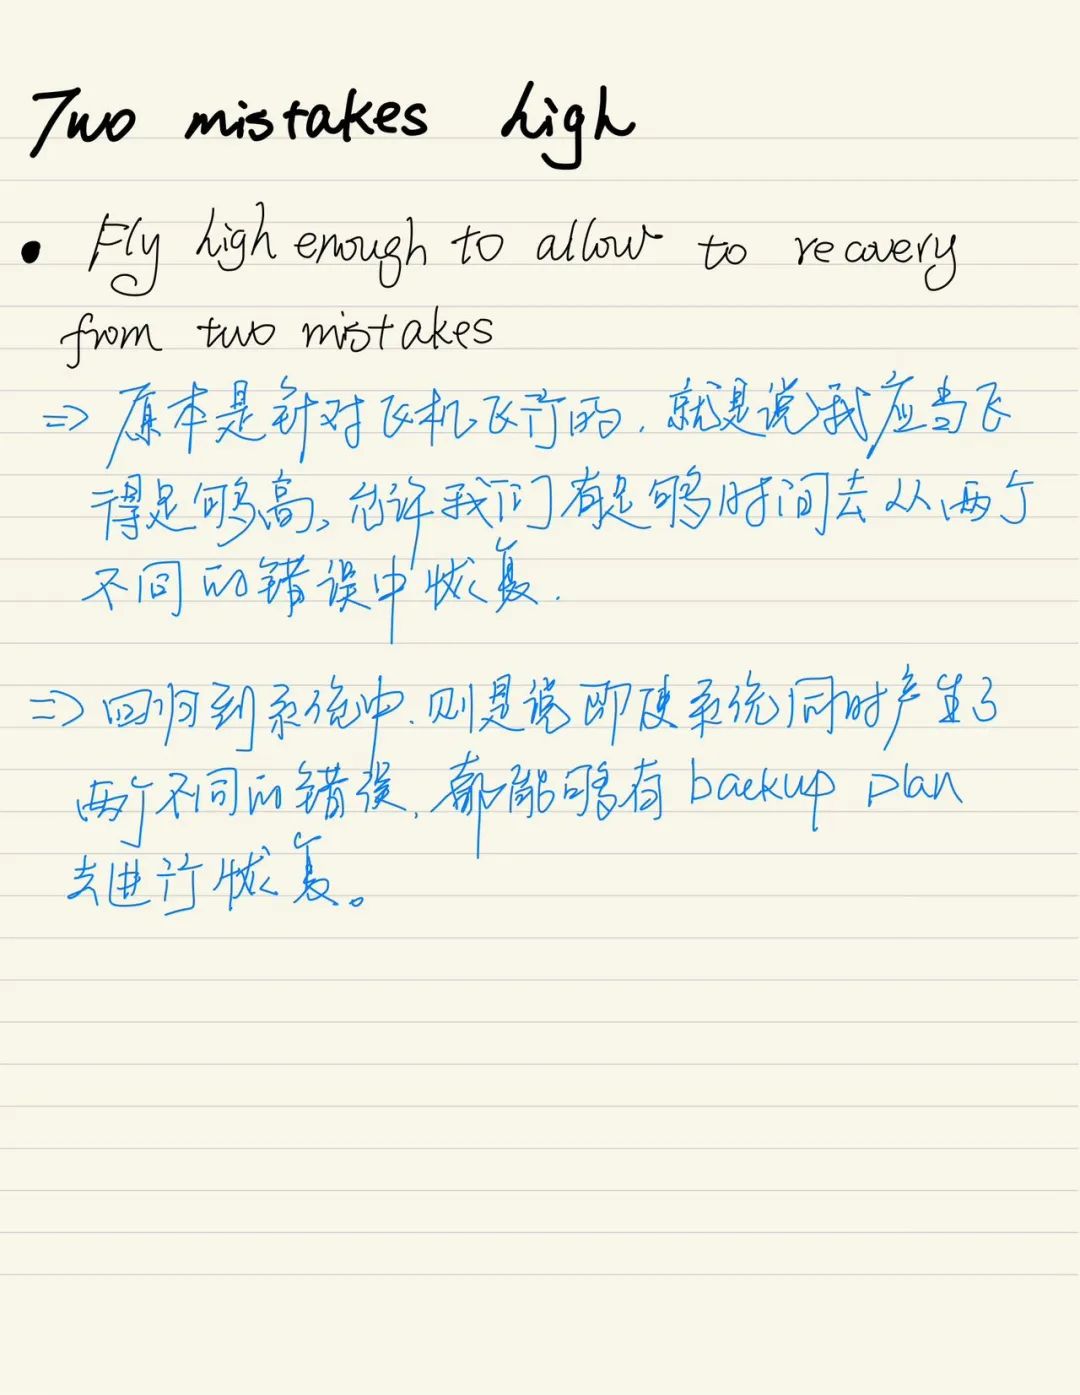 Two mistakes high
• Fly high enough to allow to recovery
from two mistakes
⇒ 原本是针对飞机飞行的,就是说我应当飞
得足够高,允许我们有足够时间去从两个
不同的错误中恢复.
⇒ 回归到系统中,则是说即使系统同时产生了
两个不同的错误,都能够有 backup plan
去进行恢复。